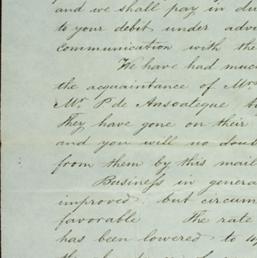 and we shall pay in du
to your debit under advi
communication with the
We have had much
the acquaintance of Mrs
Mr. P de Ansoategue
They have gone on their
and you will no doub
from them by this mail
Business in genera
improved, but circum
favorable The rate
has been lowered to